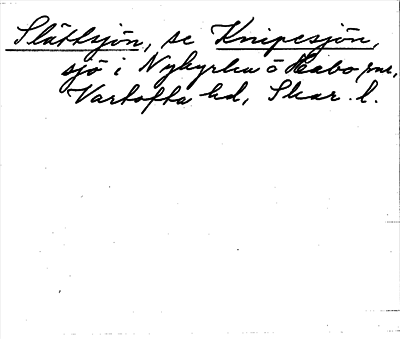 Slättsjön, se Knipesjön,
sjö i Nykyrka o Habo snr,
Vartofta hd, Skar. l.